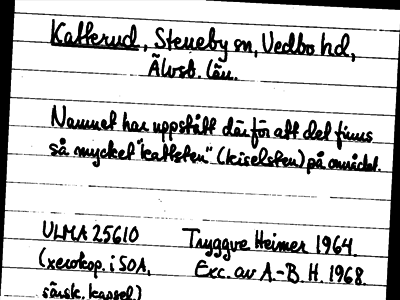 Katterud, Steneby sn, Vedbo hd,
Älvsb. län.
Namnet har uppstått därför att det finns
så mycket "kattsten" (kiselsten) på området.
ULMA 25610
(xerokop. i SOA,
särsk. kapsel)
Tryggve Heimer 1964.
Exc. av A.-B. H. 1968.